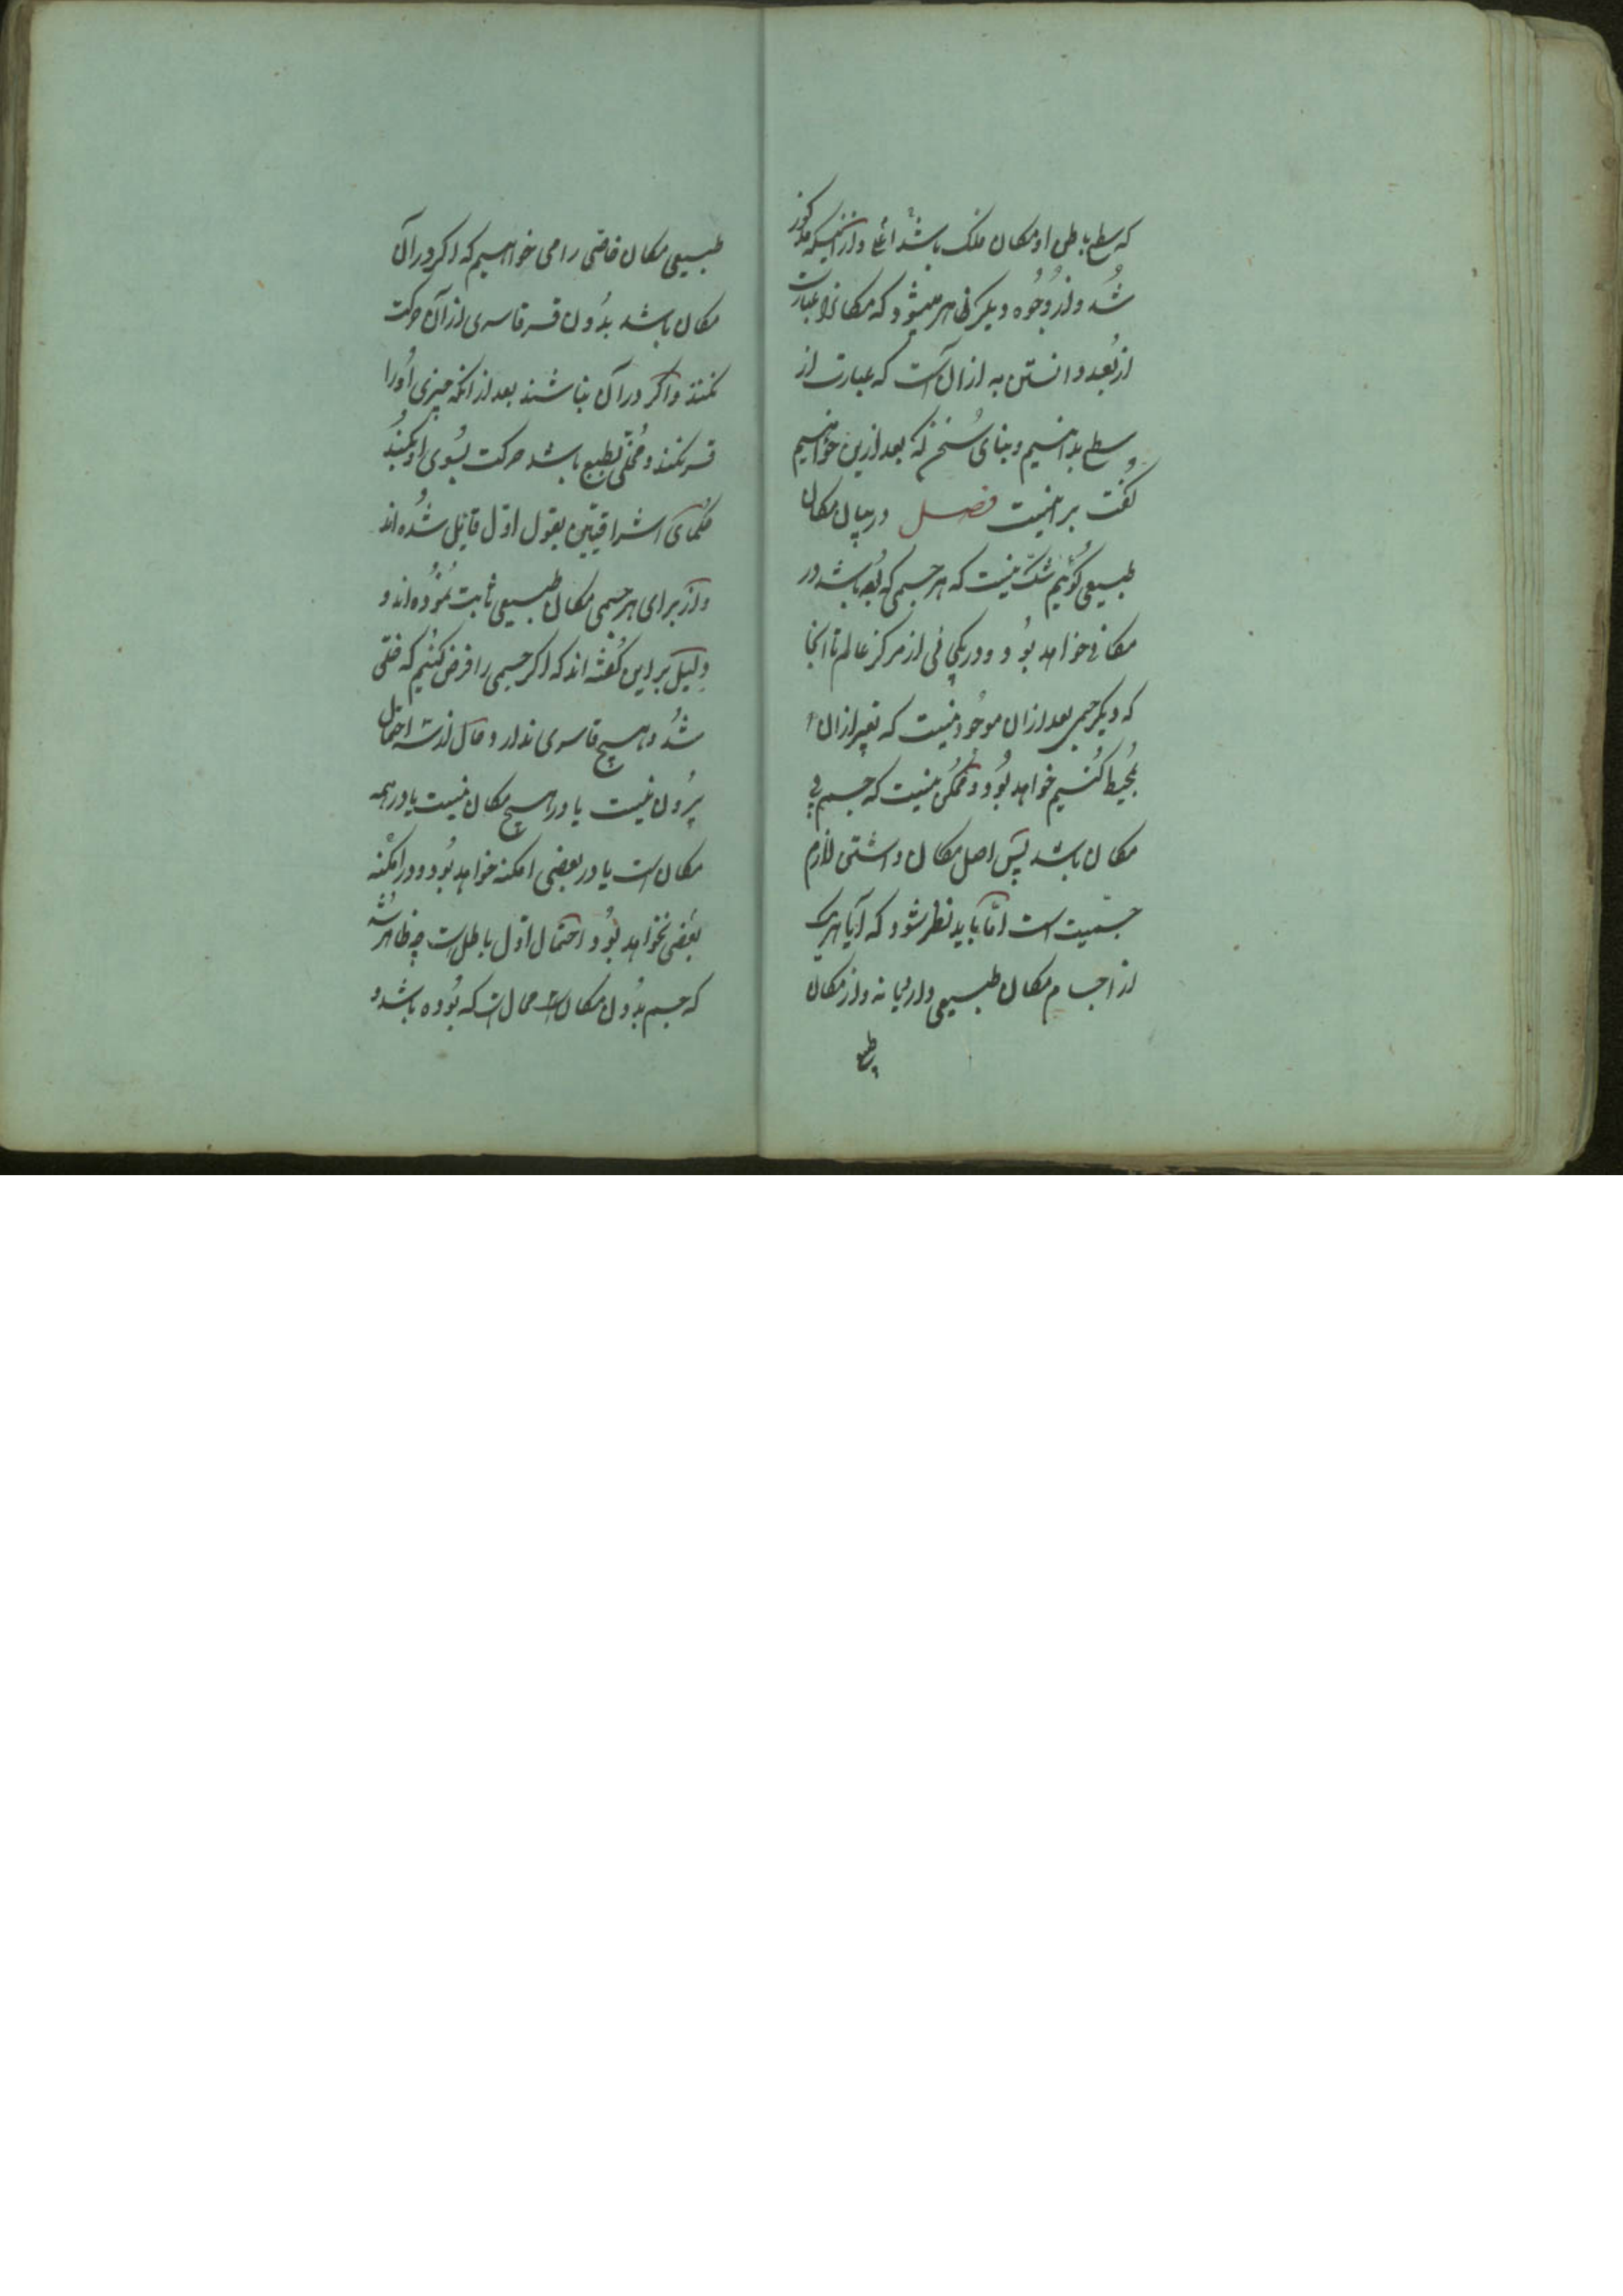 که سطح باطن او مکان فلک باشد و از اینکه مذکور
شد و از وجوه دیگر ظاهر میشود که مکانرا عبارت
از بُعد دانستن به ازان است که عبارت از
سطح بدانیم و بنای سُخن که بعد ازین خواهیم
گفت بر اینست فصل در بیان مکان
طبیعی گوئیم شکّ نیست که هر جسمی که بُوَد باشد در
مکانی خواهد بُود و در یکجائی از مرکز عالم تا آنجا
که دیگر جسمی بعد ازان موجُود نیست که تعبیر ازان
بمُحیط کنیم خواهد بُود و مُمکن نیست که جسم بی
مکان باشد پس اصل مکان داشتن لازم
جسمیت است امّا باید نظر شود که آیا هر یک
از اجسام مکان طبیعی دارد یا نه و از مکان
طبیعی
طبیعی مکان خاصّی را می خواهیم که اگر در آن
مکان باشد بدُون قسر قاسری از آن حرکت
نکند و اگر در آن نباشند بعد از آنکه چیزی اُورا
قسر نکند و مُخلّی بطبع باشد حرکت بسُوی او بکند
حُکمای اشراقیّین بقول اوّل قایل شُده اند
و از برای هر جسمی مکان طبیعی ثابت نمُوده اند و
دلیل بر این گفته اند که اگر جسمی را فرض کنیم که خلق
شُد و هیچ قاسری ندارد حال از سه احتمال
بیرُون نیست یا در هیچ مکان نیست یا در همه
مکان است یا در بعضی امکنه خواهد بُود و در امکنه
بعضی نخواهد بُود احتمال اوّل باطل است چه ظاهر شد
که جسم بدُون مکان محال است که بُوده باشد و